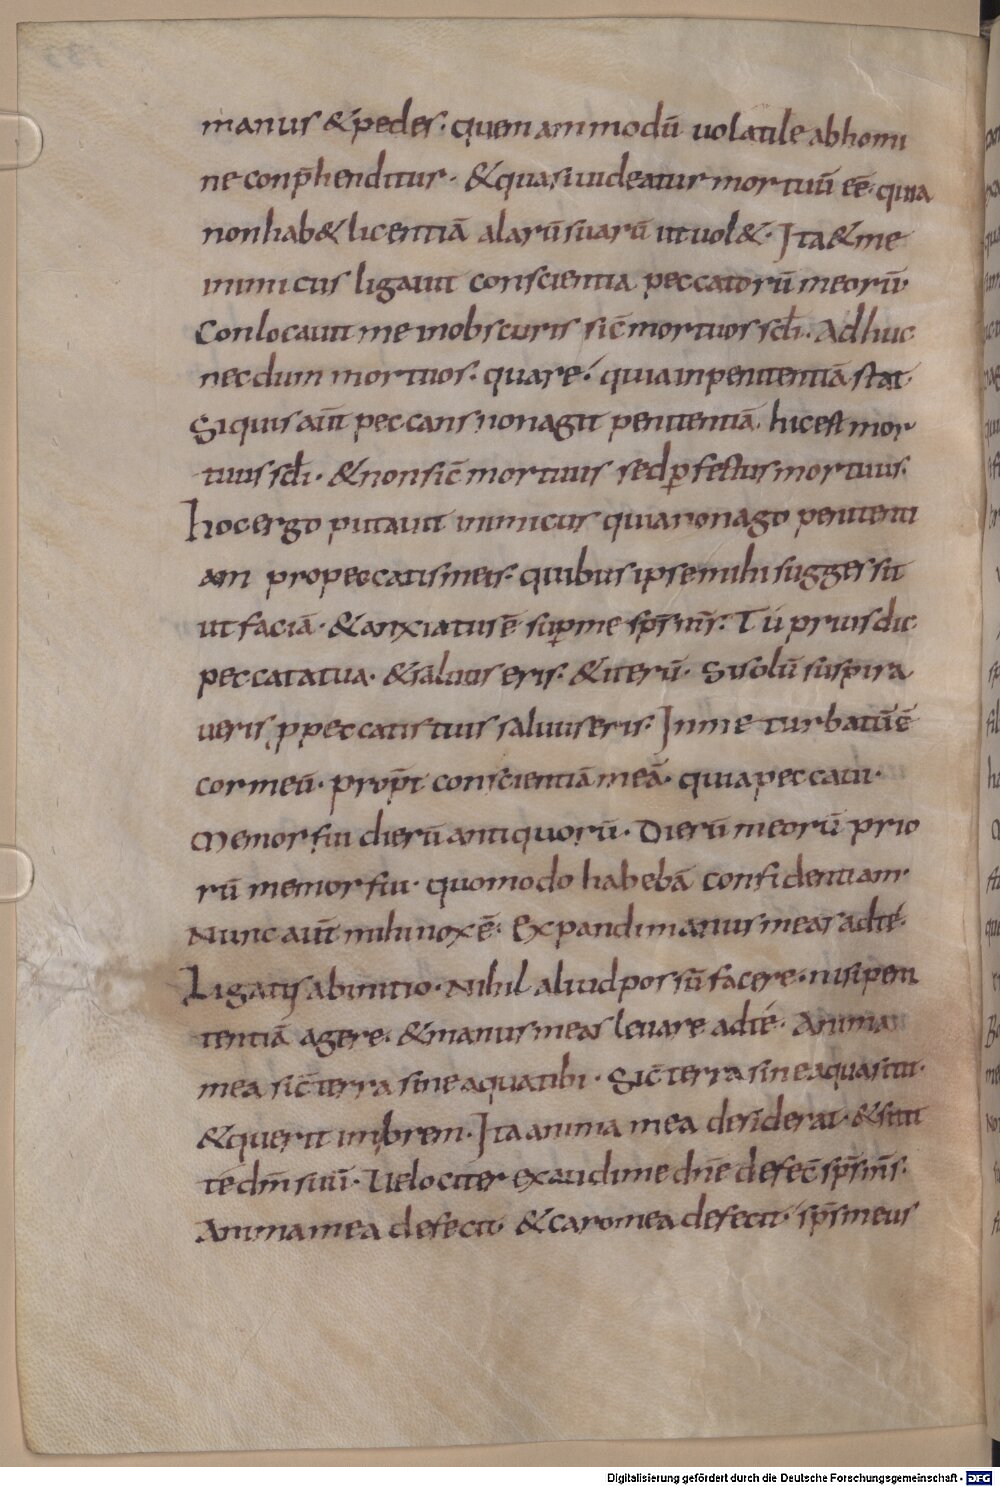 manus & pedes· quem ammodū uolatile abhomi
ne conp̄henditur· & quasi uideatur mortuū eē· quia
non hab& licentiā alarū suarū ut uol&· Ita & me
inimicus ligauit conscientia peccatorū meorū·
Conlocauit me in obscuris sic̄ mortuos sc̄li· Adhuc
necdum mortuos· quare· quia in penitentiā stat·
Si quis aūt peccans non agit penitentiā· hic est mor
tuus sc̄li· & non sic̄ mortuus sed ꝑfectus mortuus·
hoc ergo putauit inimicus quia non ago peniteti
am pro peccatis meis· quibus ipse mihi suggessit
ut faciā· & anxiatus ē suꝑ me sp̄s m̄s· Tu prius dic
peccata tua· & saluus eris· & iterū· Si solū suspira
ueris ꝓ peccatis tuis saluus eris· In me turbatū ē
cor meū· propt̄ conscientiā meā· quia peccaui·
Memor fui dierū antiquorū· Dierū meorū prio
rū memor fui· quomodo habebā confidentiam·
Nunc aūt mihi nox ē· Expandi manus meas ad te·
Ligatis ab initio· Nihil aliud possū facere· nisi peni
tentiā agere· & manus meas leuare ad te· Anima
mea sic̄ terra sine aqua tibi· Sic̄ terra sine aqua sitit·
& querit imbrem· Ita anima mea desiderat· & sitit
te dn̄m suū· Uelociter exaudi me dn̄e defec̄ sp̄s m̄s·
Anima mea defecit· & caro mea defecit· sp̄s meus
Digitalisierung gefördert durch die Deutsche Forschungsgemeinschaft - DFG